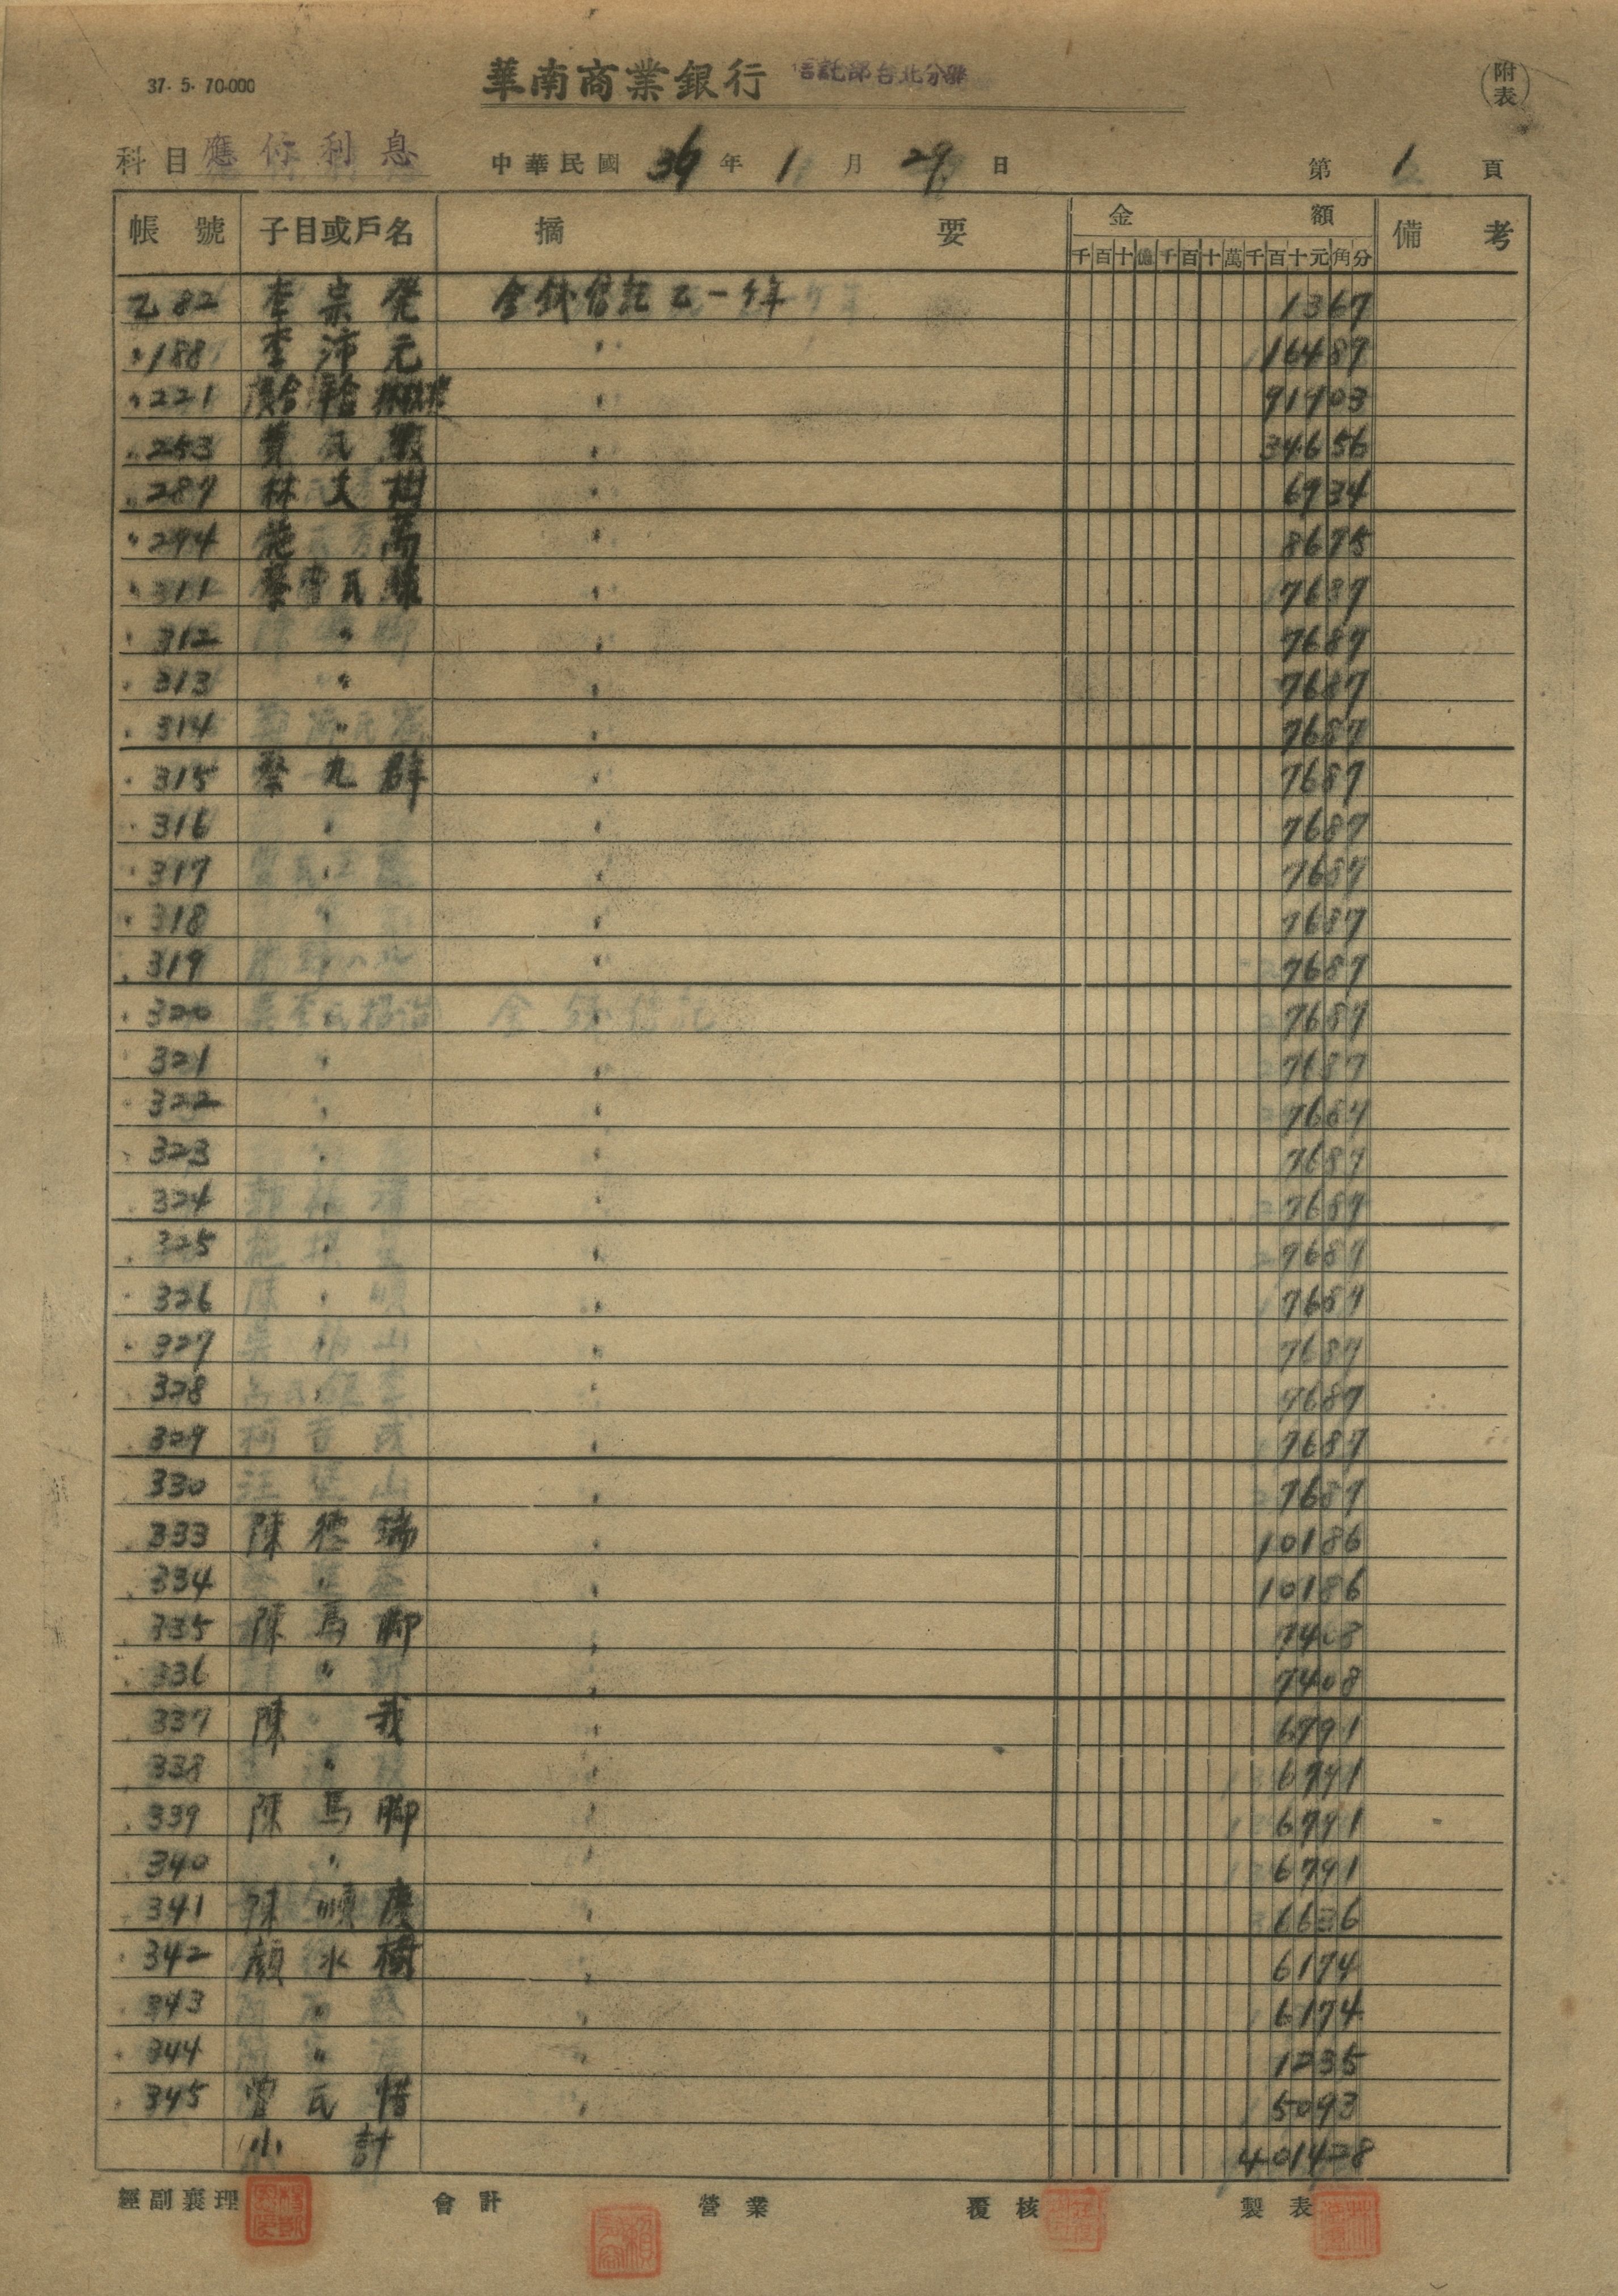 37. 5. 70.000
華南商業銀行 信託部台北分部
(附表)
科目 應付利息 中華民國 36 年 1 月 29 日 第 1 頁
帳號 子目或戶名 摘要 金額 備考
千百十億千百十萬千百十元角分
乙 82 李宗發 金錢信託乙一ケ年 1367
〃188 李沛元 〃 16487
〃221 〃 91903
〃253 黃氏 〃 34656
〃289 林文樹 〃 6934
〃294 施萬 〃 8675
〃311 蔡曾氏 〃 7687
〃312 〃 〃 7687
〃313 〃 〃 7687
〃314 〃 〃 7687
〃315 蔡九群 〃 7687
〃316 〃 〃 7687
〃317 〃 〃 7687
〃318 〃 〃 7687
〃319 〃 〃 7687
〃320 〃 〃 7687
〃321 〃 〃 7687
〃322 〃 〃 7687
〃323 〃 〃 7687
〃324 〃 〃 7687
〃325 〃 〃 7687
〃326 〃 〃 7687
〃327 〃 〃 7687
〃328 〃 〃 7687
〃329 〃 〃 7687
〃330 〃 〃 7687
〃333 陳德瑞 〃 10186
〃334 〃 〃 10186
〃335 陳馬腳 〃 7408
〃336 〃 〃 7408
〃337 陳我 〃 6791
〃338 〃 〃 6791
〃339 陳馬腳 〃 6791
〃340 〃 〃 6791
〃341 陳順慶 〃 6636
〃342 顏水樹 〃 6174
〃343 〃 〃 6174
〃344 〃 〃 1235
〃345 曾氏惜 〃 5093
小計 401428
經副襄理 會計 營業 覆核 製表